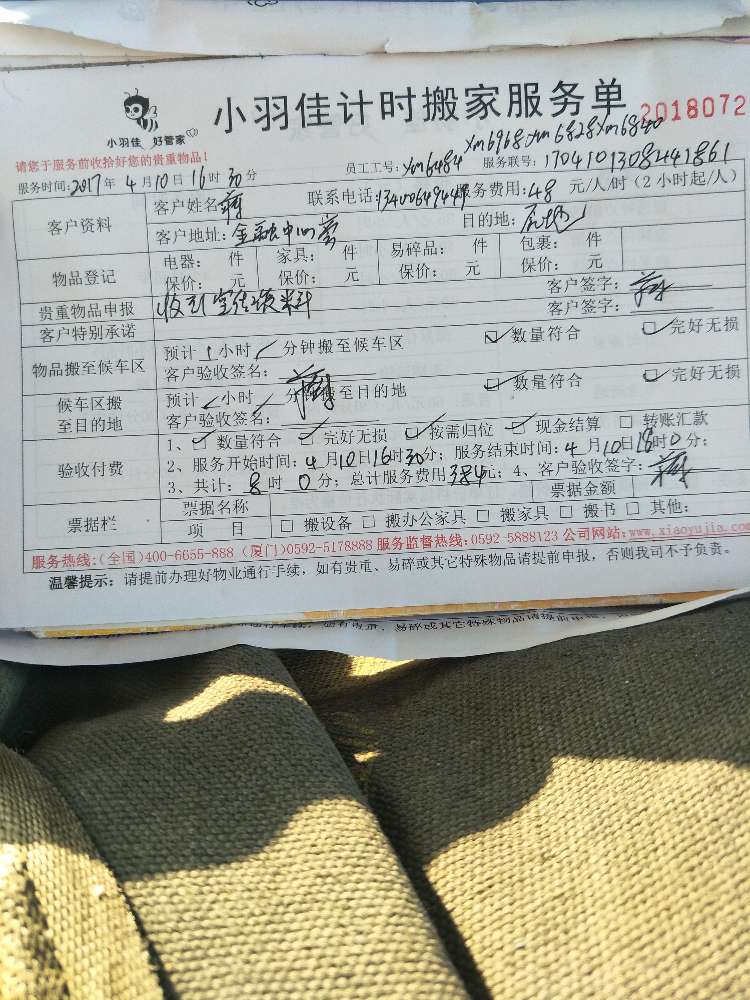 小羽佳 好管家
小羽佳计时搬家服务单 2018072
请您于服务前收拾好您的贵重物品!
员工工号: Xm6484 Xm6968 Xm6828 Xm6840
服务时间: 2017年 4月10日16时30分 服务联号: 17041013084418​61
客户资料 客户姓名 蒋 联系电话: 服务费用: 48 元/人/时 (2小时起/人)
客户地址: 金融中心 目的地:
物品登记 电器: 件 家具: 件 易碎品: 件 包裹: 件
保价: 元 保价: 元 保价: 元 保价: 元
贵重物品申报 客户签字:
客户特别承诺 客户签字:
物品搬至候车区 预计 1 小时 / 分钟搬至候车区 数量符合 完好无损
客户验收签名:
候车区搬至目的地 预计 小时 分钟搬至目的地 数量符合 完好无损
客户验收签名:
验收付费 1、 数量符合 完好无损 按需归位 现金结算 转账汇款
2、服务开始时间: 4月10日16时30分; 服务结束时间: 4月10日18时0分;
3、共计: 8时 0分; 总计服务费用 384元; 4、客户验收签字:
票据栏 票据名称 票据金额
项 目 搬设备 搬办公家具 搬家具 搬书 其他:
服务热线:(全国)400-6655-888 (厦门)0592-5178888 服务监督热线:0592 5888123 公司网站:www.xiaoyujia.com
温馨提示: 请提前办理好物业通行手续, 如有贵重、易碎或其它特殊物品请提前申报, 否则我司不予负责。